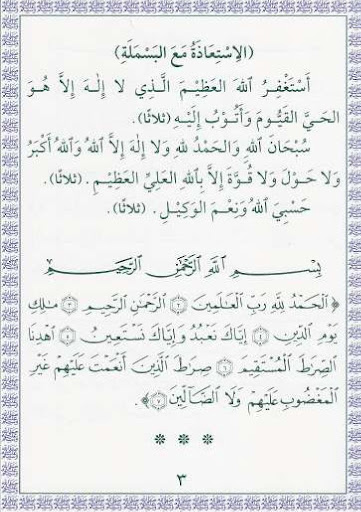 (الاِسْتِعَاذَةُ مَعَ البَسْمَلَةِ)
أَسْتَغْفِرُ اللهَ العَظِيْمَ الَّذِي لا إِلٰهَ إِلاَّ هُوَ
الحَيَّ القَيُّومَ وَأَتُوْبُ إِلَيْهِ (ثلاثًا).
سُبْحَانَ اللهِ وَالحَمْدُ لِلهِ وَلا إِلٰهَ إِلاَّ اللهُ وَاللهُ أَكْبَرُ
وَلا حَوْلَ وَلا قُوَّةَ إِلاَّ بِاللهِ العَلِيِّ العَظِيْمِ . (ثلاثًا).
حَسْبِيَ اللهُ وَنِعْمَ الوَكِيْلُ . (ثلاثًا).
بِسْمِ اللَّهِ الرَّحْمَٰنِ الرَّحِيمِ
﴿ الْحَمْدُ لِلَّهِ رَبِّ الْعَالَمِينَ ٢ الرَّحْمَٰنِ الرَّحِيمِ ٣ مَالِكِ
يَوْمِ الدِّينِ ٤ إِيَّاكَ نَعْبُدُ وَإِيَّاكَ نَسْتَعِينُ ٥ اهْدِنَا
الصِّرَاطَ الْمُسْتَقِيمَ ٦ صِرَاطَ الَّذِينَ أَنْعَمْتَ عَلَيْهِمْ غَيْرِ
الْمَغْضُوبِ عَلَيْهِمْ وَلَا الضَّالِّينَ ٧ ﴾.
* * *
٣